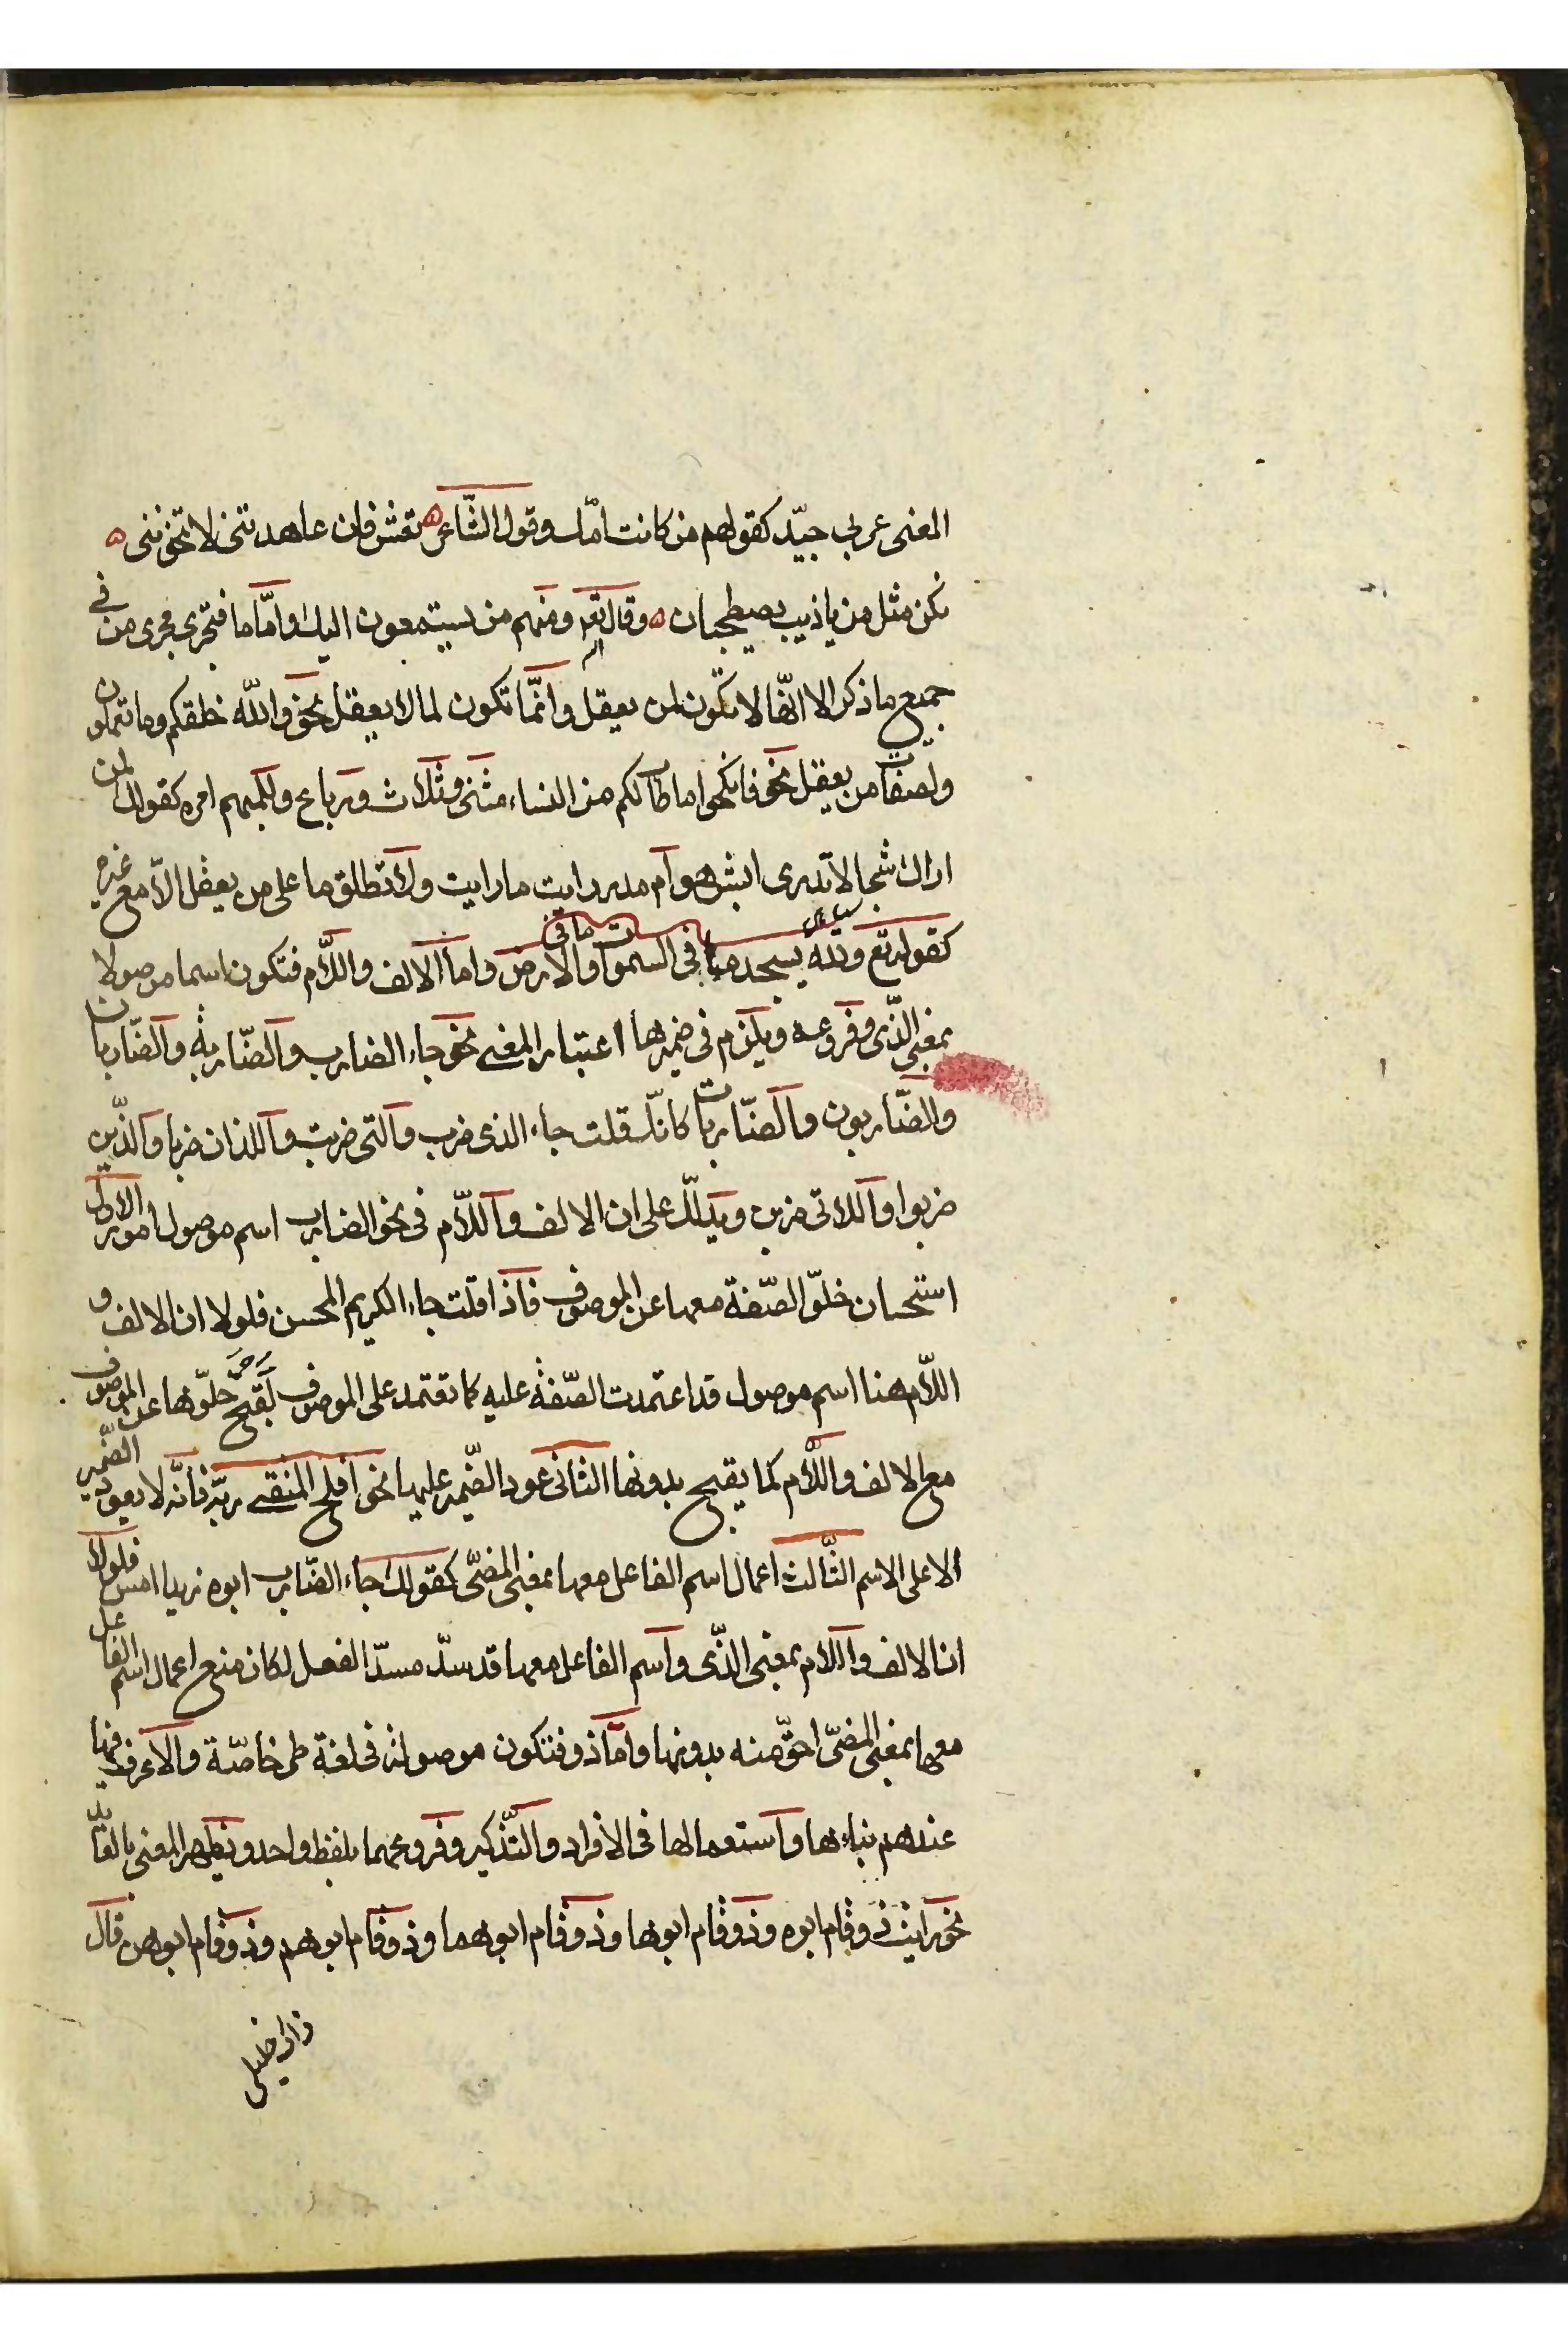 المعنى عربي جيّد كقولهم من كانت امّك وقول الشّاعر ه تعش فان عاهدتني لا تخونني ه
نكن مثل من ياذيب يصطحبان ه وقال تعـ ومنهم من يستمعون اليك وامّا ما فتجري مجرى من في
جميع ما ذكر الا انّها لا تكون لمن يعقل وانّما تكون لما لا يعقل نحو والله خلقكم وما تعملون
ولصفات من يعقل نحو فانكحوا ما طاب لكم من النساء مثنى وثلاث ورباع وللمبهم امره كقولك لمن
اراك شبحا لا تدري ابشر هو ام مدر رايت ما رايت ولا تطلق ما على من يعقل الا مع غيره
كقوله تع ولله يسجد ما في السموات وما في الارض واما الالف واللام فتكون اسما موصولا
بمعنى الذّي وفروعه ويلزم في ضميرها اعتبار المعنى نحو جاء الضارب والضّاربة والضّاربان
والضّاربون والضّاربات كانّك قلت جاء الذي ضرب والتي ضربت واللذان ضربا والذّين
ضربوا واللاتي ضربن ويدلّك على ان الالف واللّام في نحو الضارب اسم موصول امور الاول
استحسان خلوّ الصّفة معها عن الموصوف فاذا قلت جاء الكريم المحسن فلولا ان الالف و
اللّام هنا اسم موصول قد اعتمدت الصّفة عليه كما تعتمد على الموصوف لقبح خلوّها عن الموصوف
مع الالف واللّام كما يقبح بدونها الثاني عود الضّمير عليها نحو افلح المتقي ربّه فانّه لا يعود الضّمير
الا على الاسم الثّالث اعمال اسم الفاعل معها بمعنى المضيّ كقولك جاء الضّارب ابوه زيدا امس فلولا
ان الالف واللام بمعنى الذّي واسم الفاعل معها قد سدّ مسدّ الفعل لكان منع اعمال اسم الفاعل
معها بمعنى المضيّ احقّ منه بدونها وامّا ذو فتكون موصولة في لغة طي خاصّة والاعرف فيها
عندهم بناءها واستعمالها في الافراد والتّذكير وفروعهما بلفظ واحد ويظهر المعنى بالعائد
نحو رايت ذو قام ابوه وذو قام ابوها وذو قام ابوهما وذو قام ابوهم وذو قام ابوهن قال
ذاك خليلي